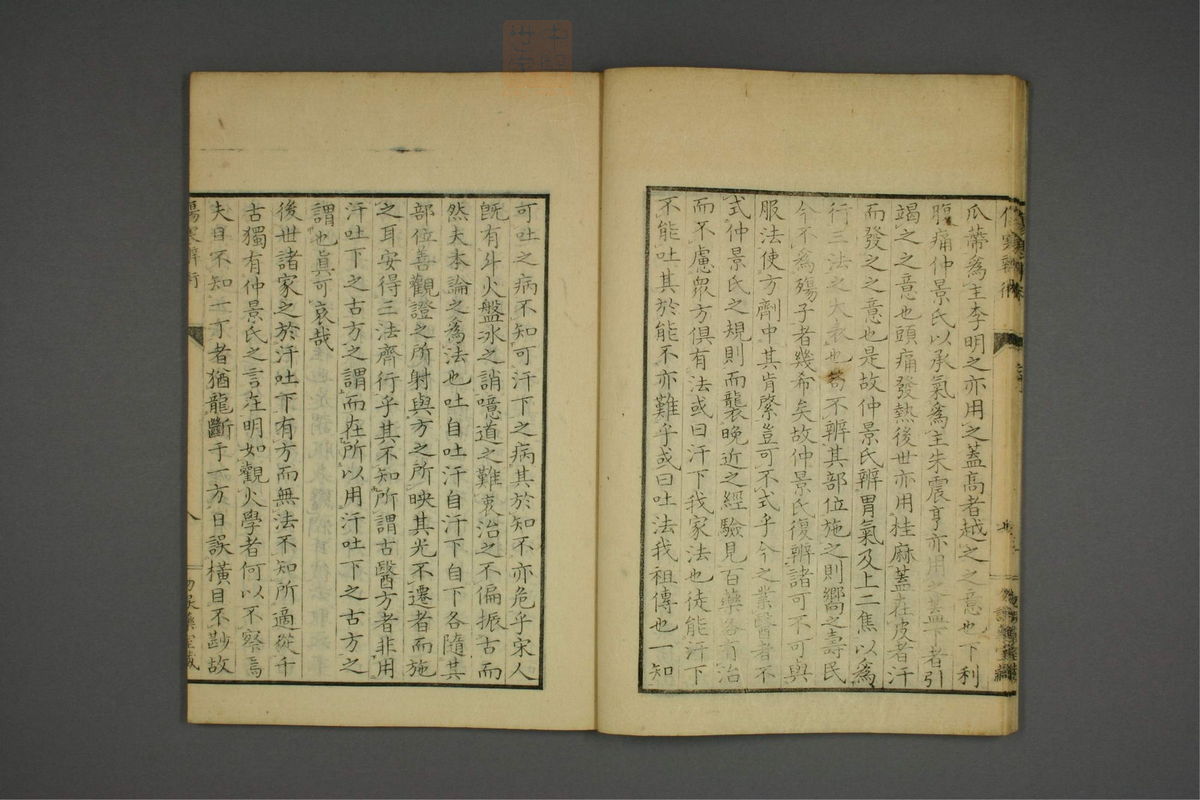 傷寒辨術
瓜蔕為主李明之亦用之蓋高者越之之意也下利
腹痛仲景氏以承氣為主朱震亨亦用之蓋下者引
竭之之意也頭痛發熱後世亦用桂麻蓋在皮者汗
而發之之意也是故仲景氏辨胃氣及上二焦以為
行三法之大表也苟不辨其部位施之則嚮之壽民
今不為殤子者幾希矣故仲景氏復辨諸可不可與
服法使方劑中其肯綮豈可不式乎今之業醫者不
式仲景氏之規則而襲晚近之經驗見百藥各有治
而不慮衆方俱有法或曰汗下我家法也徒能汗下
不能吐其於能不亦難乎或曰吐法我祖傳也一知
可吐之病不知可汗下之病其於知不亦危乎宋人
既有斗火盤冰之誚噫道之難衷治之不偏振古而
然夫本論之為法也吐自吐汗自汗下自下各隨其
部位善觀證之所射與方之所映其光不遷者而施
之耳安得三法齊行乎其不知所謂古醫方者非用
汗吐下之古方之謂而在所以用汗吐下之古方之
謂也眞可哀哉
後世諸家之於汗吐下有方而無法不知所適從千
古獨有仲景氏之言在明如觀火學者何以不察焉
夫目不知一丁者猶龍斷于一方日誤橫目不尠故
傷寒辨術
八